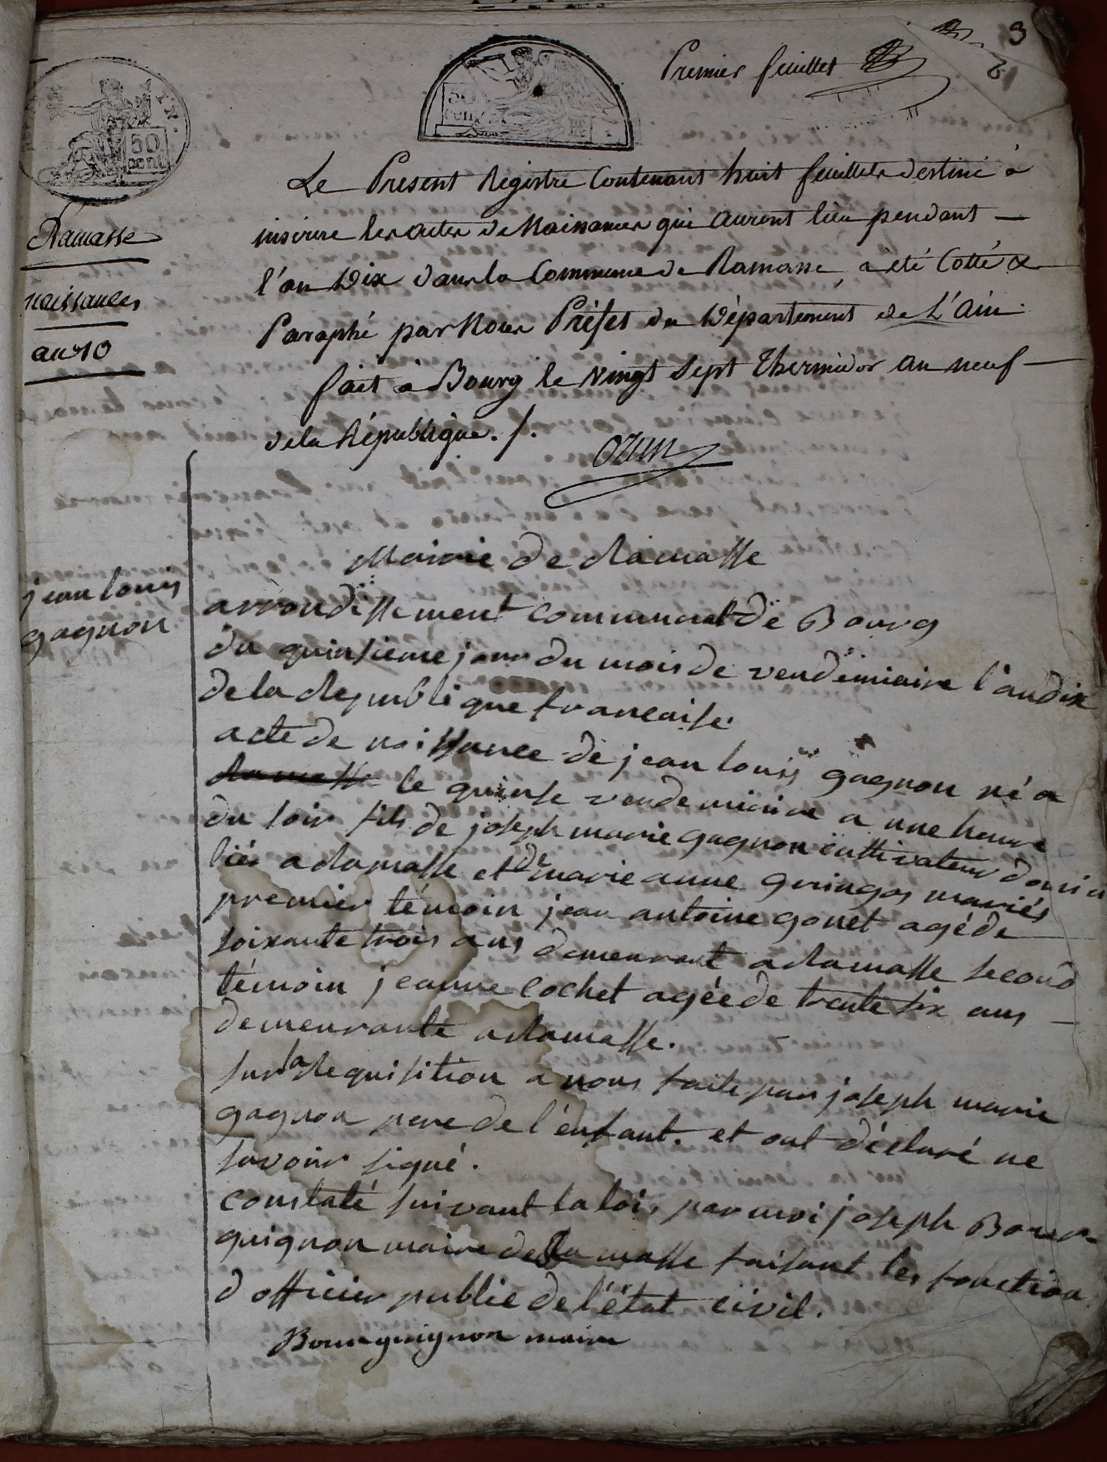 3
Premier feuillet
50
cent
Ramasse
naissances
an 10
Le Present Registre Contenant huit feuillets destiné à
inscrire les actes de Naissances qui auront lieu pendant
l'an Dix dans la Commune de Ramasse, a été Cotté &
Paraphé par Nous Préfet du Département de L'Ain.
fait à Bourg le Vingt Sept Thermidor an neuf
de la République ./.
Ozun
Mairie de Ramasse
arrondissement communal de Bourg
jean louis
gagnon
du quinsieme jour du mois de vendémiaire l'an dix
de la Republique francaise.
acte de naissance de jean louis gagnon né a
Ramasse le quinse vendemiaire a une heure
du soir fils de joseph marie gagnon cultivateur domici
lié a Ramasse et de marie anne gringos mariés
premier témoin jean antoine gonet agé de
soixante trois ans demeurant a Ramasse second
témoin jeanne cochet agée de trente six ans
demeurante a Ramasse.
sur la Requisition a nous faite par joseph marie
gagnon pere de l'enfant. et ont déclaré ne
savoir signé.
constaté suivant la loi, par moi joseph Bour
guignon maire de Ramasse faisant les fonction
d officier public de l'état civil.
Bourguignon maire